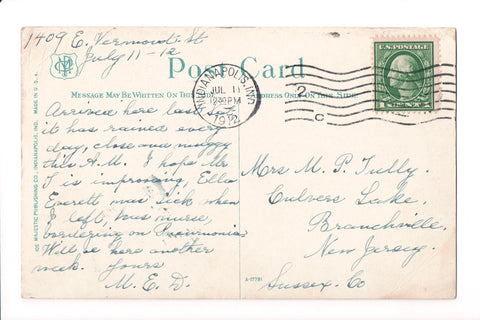 1409 E. Vermont St
July 11-12
Post Card
MESSAGE MAY BE WRITTEN ON THIS SIDE
ADDRESS ONLY ON THIS SIDE
INDIANAPOLIS, IND.
JUL 11
1230PM
1912
2
C
U.S. POSTAGE
Arrived here last
it has rained every
day, close and muggy
this A.M. I hope
I is improving, Ella
Everett was sick when
I left, has nurse,
bordering on Pneumonia
Will be here another
week. Yours
M. E. D.
Mrs M. P. Tully
Culvers Lake,
Branchville,
New Jersey.
Sussex. Co
A-17791
105 MAJESTIC PUBLISHING CO., INDIANAPOLIS, IND. MADE IN U.S.A.